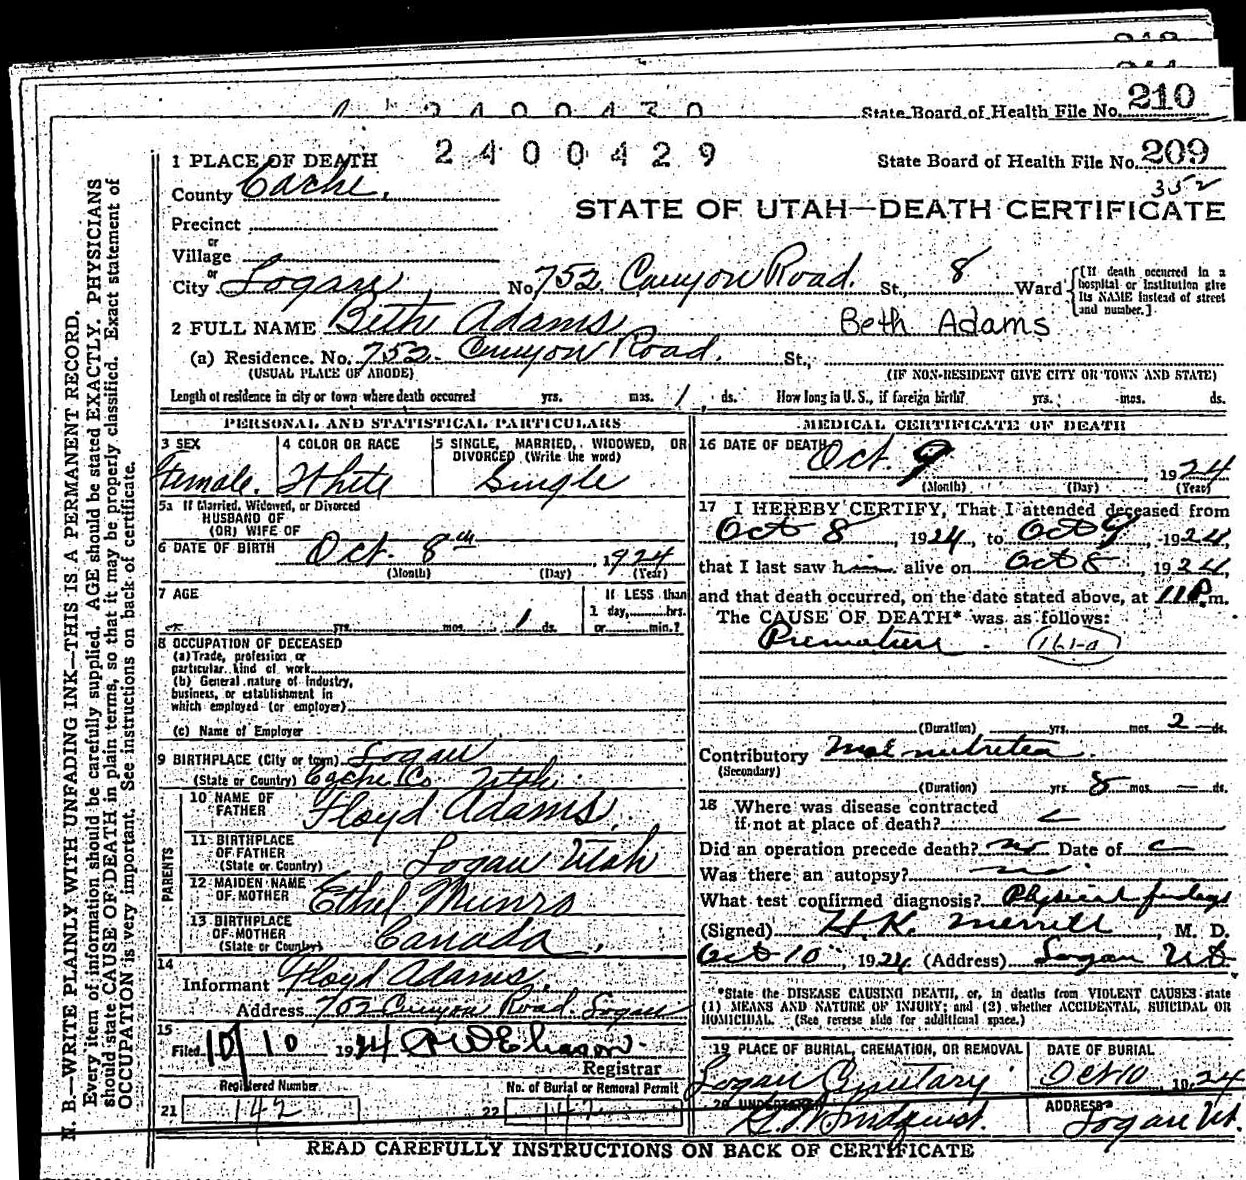 210
State Board of Health File No. 210
2 4 0 0 4 3 0
2 4 0 0 4 2 9
State Board of Health File No. 209
352
1 PLACE OF DEATH
County Cache.
STATE OF UTAH—DEATH CERTIFICATE
Precinct
or
Village
or
City Logan No. 752 Canyon Road. St., 8 Ward
[If death occurred in a
hospital or institution give
its NAME instead of street
and number.]
2 FULL NAME Beth Adams Beth Adams
(a) Residence. No. 752 Canyon Road. St.,
(USUAL PLACE OF ABODE) (IF NON-RESIDENT GIVE CITY OR TOWN AND STATE)
Length of residence in city or town where death occurred yrs. mos. 1 ds. How long in U. S., if foreign birth? yrs. mos. ds.
PERSONAL AND STATISTICAL PARTICULARS
3 SEX
Female.
4 COLOR OR RACE
White
5 SINGLE, MARRIED, WIDOWED, OR
DIVORCED (Write the word)
Single
5a If Married, Widowed, or Divorced
HUSBAND OF
(OR) WIFE OF
6 DATE OF BIRTH Oct. 8th 1924
(Month) (Day) (Year)
7 AGE
yrs. mos. 1 ds.
If LESS than
1 day, hrs.
or min.?
8 OCCUPATION OF DECEASED
(a) Trade, profession or
particular kind of work
(b) General nature of industry,
business, or establishment in
which employed (or employer)
(c) Name of Employer
9 BIRTHPLACE (City or town) Logan
(State or Country) Cache Co. Utah.
PARENTS
10 NAME OF
FATHER Floyd Adams.
11 BIRTHPLACE
OF FATHER
(State or Country) Logan Utah
12 MAIDEN NAME
OF MOTHER Ethel Munro
13 BIRTHPLACE
OF MOTHER
(State or Country) Canada.
14
Informant Floyd Adams.
Address 752 Canyon Road. Logan
15
Filed 10/10 1924
Registrar
Registered Number
21 142
No. of Burial or Removal Permit
22 142
MEDICAL CERTIFICATE OF DEATH
16 DATE OF DEATH Oct. 9 1924
(Month) (Day) (Year)
17 I HEREBY CERTIFY, That I attended deceased from
Oct 8, 1924, to Oct 9, 1924,
that I last saw h alive on Oct 8, 1924,
and that death occurred, on the date stated above, at 11 P. m.
The CAUSE OF DEATH* was as follows:
Premature. (161-a)
(Duration) yrs. mos. 2 ds.
Contributory Mal nutrition.
(Secondary)
(Duration) yrs. 8 mos. — ds.
18 Where was disease contracted
if not at place of death?
Did an operation precede death? no Date of
Was there an autopsy? no
What test confirmed diagnosis? Physical findings
(Signed) H. K. Merrill, M. D.
Oct 10, 1924 (Address) Logan Ut.
*State the DISEASE CAUSING DEATH, or, in deaths from VIOLENT CAUSES state
(1) MEANS AND NATURE OF INJURY; and (2) whether ACCIDENTAL, SUICIDAL OR
HOMICIDAL. (See reverse side for additional space.)
19 PLACE OF BURIAL, CREMATION, OR REMOVAL
Logan Cemetary
DATE OF BURIAL
Oct 10 1924
20 UNDERTAKER
ADDRESS
Logan Ut.
READ CAREFULLY INSTRUCTIONS ON BACK OF CERTIFICATE
N. B.—WRITE PLAINLY WITH UNFADING INK—THIS IS A PERMANENT RECORD.
Every item of information should be carefully supplied. AGE should be stated EXACTLY. PHYSICIANS
should state CAUSE OF DEATH in plain terms, so that it may be properly classified. Exact statement of
OCCUPATION is very important. See instructions on back of certificate.